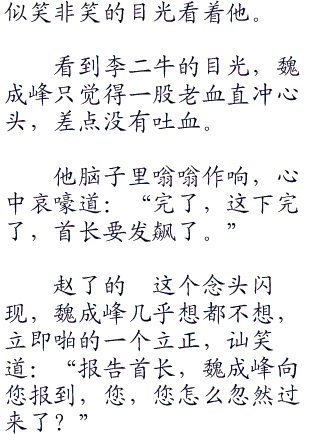 似笑非笑的目光看着他。
看到李二牛的目光，魏
成峰只觉得一股老血直冲心
头，差点没有吐血。
他脑子里嗡嗡作响，心
中哀嚎道：“完了，这下完
了，首长要发飙了。”
赵了的　这个念头闪
现，魏成峰几乎想都不想，
立即啪的一个立正，讪笑
道：“报告首长，魏成峰向
您报到，您，您怎么忽然过
来了？”